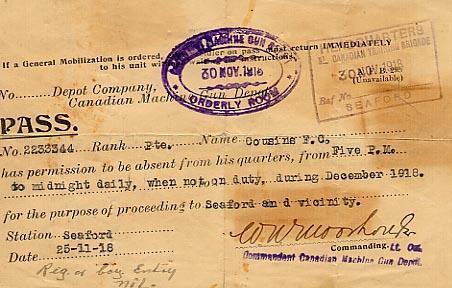 If a General Mobilization is ordered, soldier on pass must return IMMEDIATELY
to his unit instructions.
MACHINE GUN
ORDERLY ROOM
HEADQUARTERS
CANADIAN TRAINING BRIGADE
30 NOV. 1918
Ref No
SEAFORD
(Unavailable)
No. Depot Company,
Canadian Machine Gun Depot
PASS.
No. 2233344 Rank Pte. Name Cousins F.C,
has permission to be absent from his quarters, from Five P.M.
to midnight daily, when not on duty, during December 1918.
for the purpose of proceeding to Seaford and vicinity.
Station Seaford
Date 25-11-18
Commanding. Lt. Col.
Commandent Canadian Machine Gun Depot.
Reg. or Coy. Entry